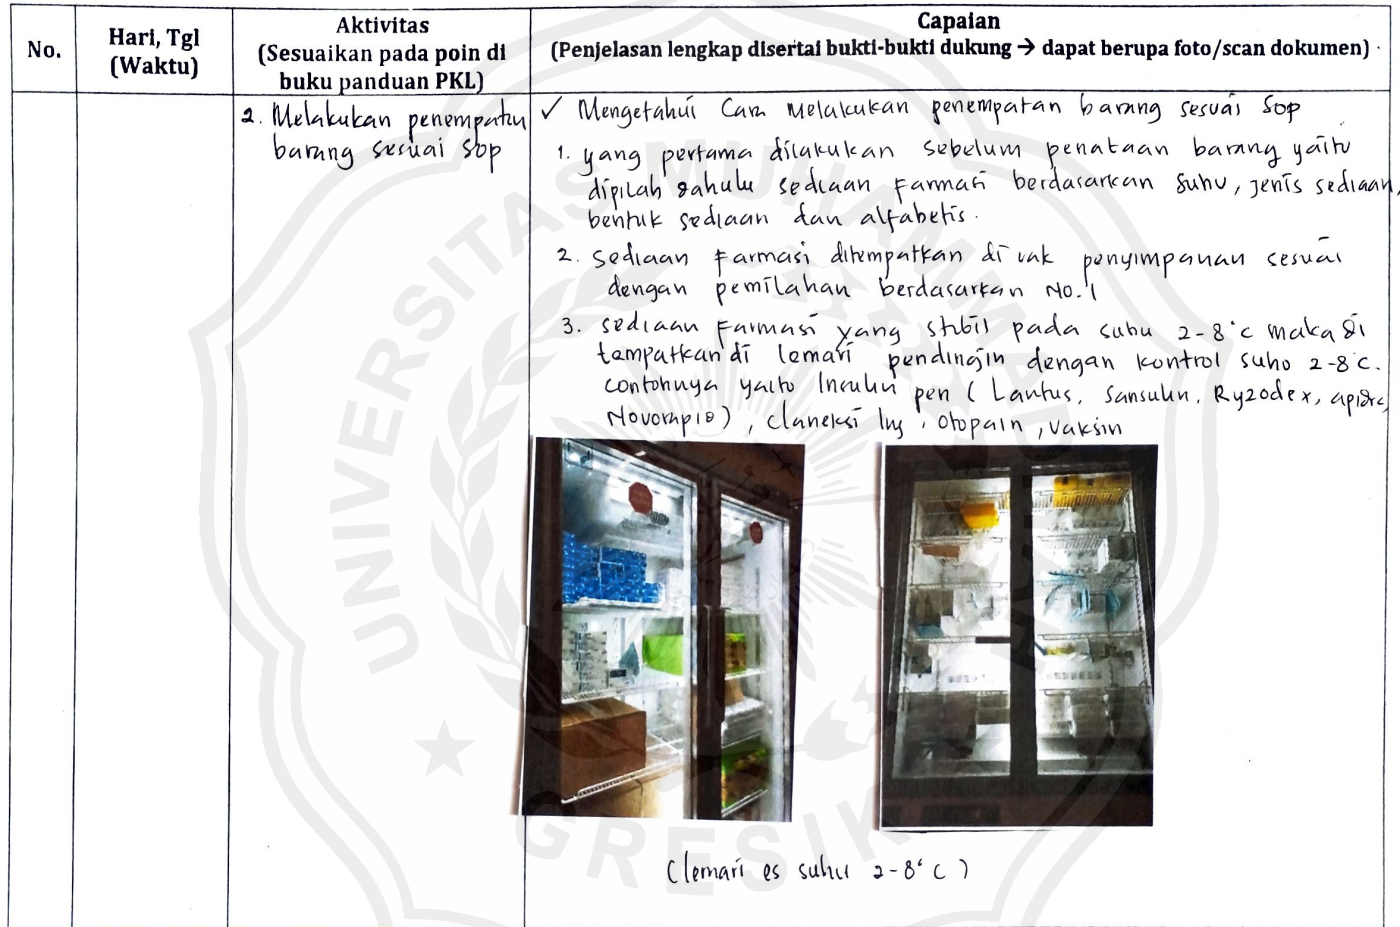 No.
Hari, Tgl
(Waktu)
Aktivitas
(Sesuaikan pada poin di
buku panduan PKL)
Capaian
(Penjelasan lengkap disertai bukti-bukti dukung → dapat berupa foto/scan dokumen)
2. Melakukan penempatan
barang sesuai sop
✓ Mengetahui Cara melakukan penempatan barang sesuai sop
1. yang pertama dilakukan sebelum penataan barang yaitu
dipilah dahulu sediaan farmasi berdasarkan suhu, jenis sediaan,
bentuk sediaan dan alfabetis.
2. sediaan farmasi ditempatkan di rak penyimpanan sesuai
dengan pemilahan berdasarkan No. 1
3. sediaan farmasi yang stabil pada suhu 2-8°c maka di
tempatkan di lemari pendingin dengan kontrol suho 2-8°c.
contohnya yaitu Insulin pen ( Lantus, Sansulin, Ryzodex, apidra,
Novorapid ) , claneksi , otopain , vaksin
( lemari es suhu 2-8° C )
UNIVERSITAS MUHAMMADIYAH
GRESIK